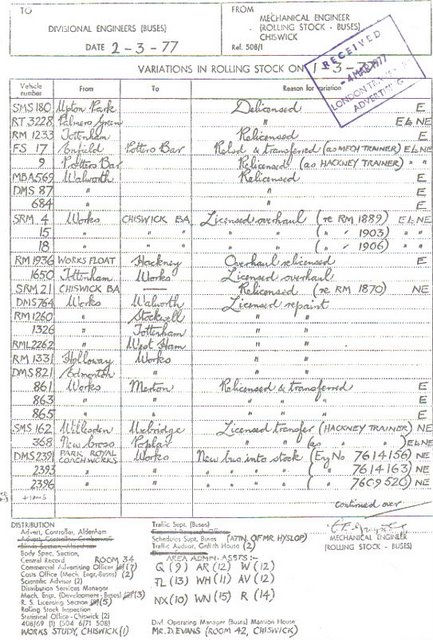 TO
DIVISIONAL ENGINEERS (BUSES)
DATE 2-3-77
FROM
MECHANICAL ENGINEER
(ROLLING STOCK - BUSES)
CHISWICK
Ref. 508/1
RECEIVED
4 MAR 1977
LONDON TRANSPORT
ADVERTISING
VARIATIONS IN ROLLING STOCK ON 1-3-77
Vehicle number From To Reason for variation
SMS 180 Upton Park Delicensed E
RT 3228 Palmers Green " E & NE
RM 1233 Tottenham Relicensed E
FS 17 Enfield Potters Bar Relsd & transferred (as MECH TRAINER) E & NE
9 Potters Bar Relicensed (as HACKNEY TRAINER) " "
MBA 569 Walworth Relicensed E
DMS 87 " " E
684 " " E
SRM 4 Works CHISWICK BA Licensed overhaul (re RM 1889) E & NE
15 " " " " " (" " 1903) " "
18 " " " " " (" " 1906) " "
RM 1936 WORKS FLOAT Hackney Overhaul relicensed E
1650 Tottenham Works Licensed overhaul
SRM 21 CHISWICK BA — Relicensed (re RM 1870) NE
DMS 764 Works Walworth Licensed repaint
RM 1260 " Stockwell " "
1326 " Tottenham " "
RML 2262 " West Ham " "
RM 1331 Holloway Works " "
DMS 821 Edmonton " " "
861 Works Merton Relicensed & transferred E
863 " " " " E
865 " " " " E
SMS 162 Willesden Uxbridge Licensed transfer (HACKNEY TRAINER) NE
368 New Cross Poplar " " (as " " ) E & NE
DMS 2391 PARK ROYAL COACHWORKS Works New bus into stock (Eng No 7614156) NE
2393 " " " " " " ( " " 7614163) NE
2396 " " " " " " ( " " 76C9526) NE
continued over
DISTRIBUTION
Advert. Controller, Aldenham
Body Spec. Section,
Central Record ROOM 34
Commercial Advertising Officer (7)
Costs Office (Mech. Engr. Buses) (2)
Scientific Adviser (2)
Distribution Services Manager
Mech. Engr. (Development - Buses) (3)
R. S. Licensing Section (5)
Rolling Stock Inspection
Statistical Office - Chiswick (2)
408/69 (1) 504 6/71 508)
WORKS STUDY, CHISWICK (1)
Traffic Supt. (Buses)
Schedules Supt. Buses (ATTN. OF MR. HYSLOP)
Traffic Auditor, Griffith House (2)
AREA ADMIN. ASSTS:-
Q (9) AR (12) W (12)
TL (13) WH (11) AV (12)
NX (10) WN (15) R (14)
Divl. Operating Manager (Buses) Mansion House
Mr. D. EVANS (ROOM 42, CHISWICK)
MECHANICAL ENGINEER
(ROLLING STOCK - BUSES)